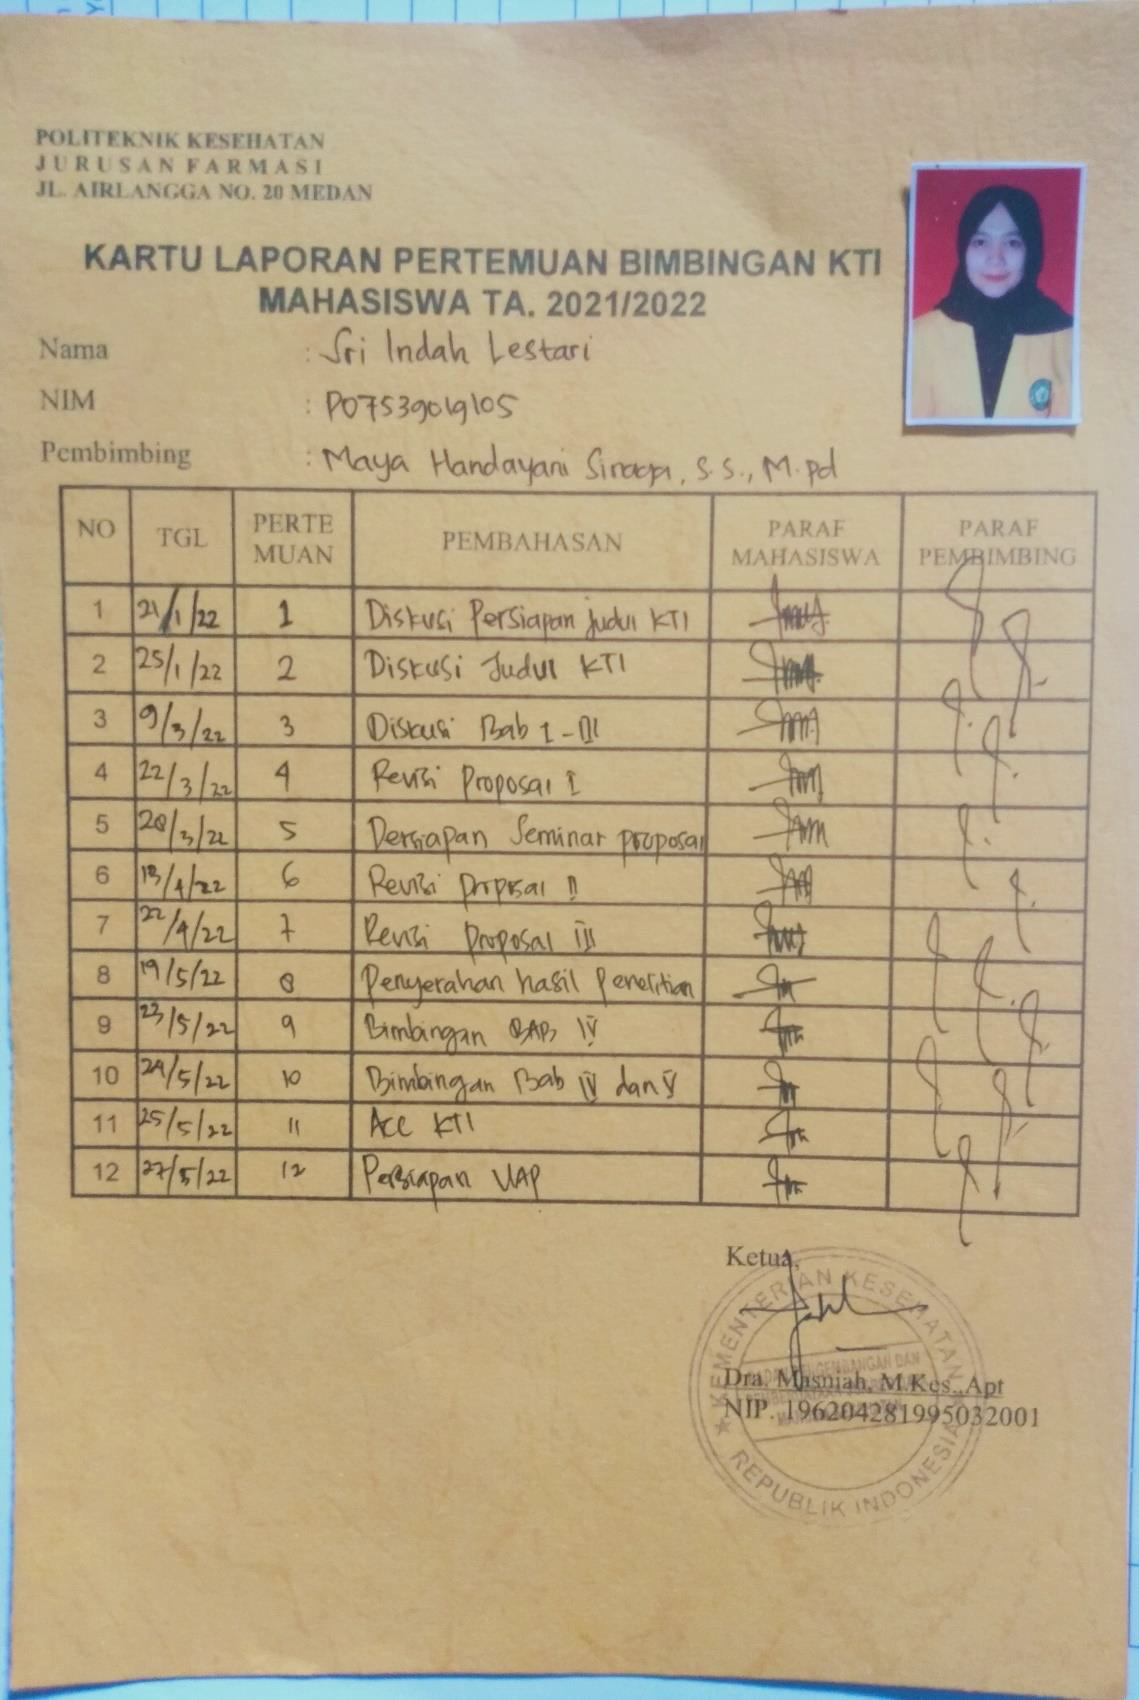 POLITEKNIK KESEHATAN
JURUSAN FARMASI
JL. AIRLANGGA NO. 20 MEDAN
KARTU LAPORAN PERTEMUAN BIMBINGAN KTI
MAHASISWA TA. 2021/2022
Nama : Sri Indah Lestari
NIM : P07539019105
Pembimbing : Maya Handayani Sinaga, S.S., M.Pd
NO TGL PERTE MUAN PEMBAHASAN PARAF MAHASISWA PARAF PEMBIMBING
1 21/1/22 1 Diskusi Persiapan judul KTI
2 25/1/22 2 Diskusi Judul KTI
3 9/3/22 3 Diskusi Bab I-III
4 22/3/22 4 Revisi Proposal I
5 28/3/22 5 Persiapan Seminar proposal
6 13/4/22 6 Revisi Proposal II
7 22/4/22 7 Revisi Proposal III
8 19/5/22 8 Penyerahan hasil Penelitian
9 23/5/22 9 Bimbingan BAB IV
10 24/5/22 10 Bimbingan Bab IV dan V
11 25/5/22 11 Acc KTI
12 27/5/22 12 Persiapan UAP
Ketua,
KEMENTERIAN KESEHATAN
Dra. Masniah, M.Kes., Apt
NIP. 196204281995032001
REPUBLIK INDONESIA